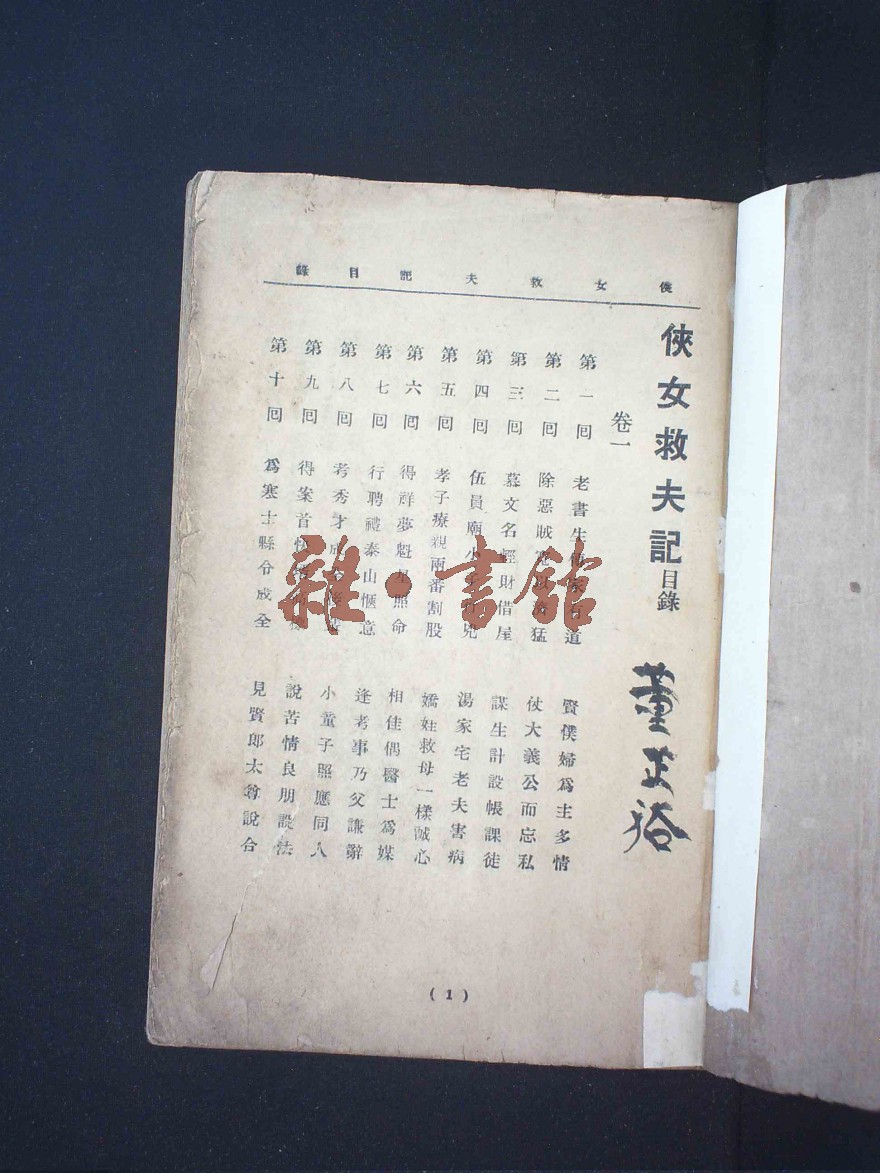 俠女救夫記目錄
俠女救夫記目錄
董正
卷一
第一回 老書生傳家有道 賢僕婦爲主多情
第二回 除惡賊 猛 仗大義公而忘私
第三回 慕文名輕財借屋 謀生計設帳課徒
第四回 伍員廟小 兇 湯家宅老夫害病
第五回 孝子療親兩番割股 嬌娃救母一樣誠心
第六回 得祥夢魁星照命 相佳偶醫士爲媒
第七回 行聘禮泰山愜意 逢考事乃父謙辭
第八回 考秀才 小童子照應同人
第九回 得案首 說苦情良朋設法
第十回 爲寒士縣令成全 見賢郎太尊說合
(1)
雜·書館